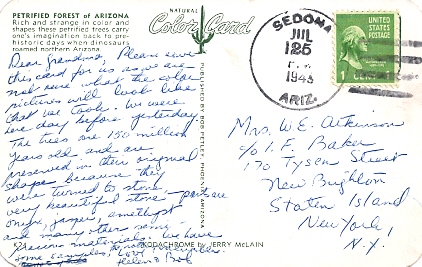 PETRIFIED FOREST of ARIZONA
Rich and strange in color and
shapes these petrified trees carry
one's imagination back to pre-
historic days when dinosaurs
roamed northern Arizona.
NATURAL
Color Card
PUBLISHED BY BOB PETLEY, PHOENIX, ARIZONA
KODACHROME by JERRY McLAIN
SEDONA
JUL
25
1943
ARIZ.
UNITED STATES
POSTAGE
1 CENT
Dear Grandma, Please save
this card for us as we are
not sure what the color
pictures will look like
that we took. We were
here day before yesterday.
The trees are 150 million
years old and are
preserved in their original
shape because they
were turned to stone,
very beautiful stone - part are
onyx, jasper, amethyst
and many other semi-
precious materials. We have
some samples,
Love
Helen & Bob
Mrs. W. E. Atkinson
c/o I. F. Baker
170 Tysen Street
New Brighton
Staten Island
New York,
N.Y.